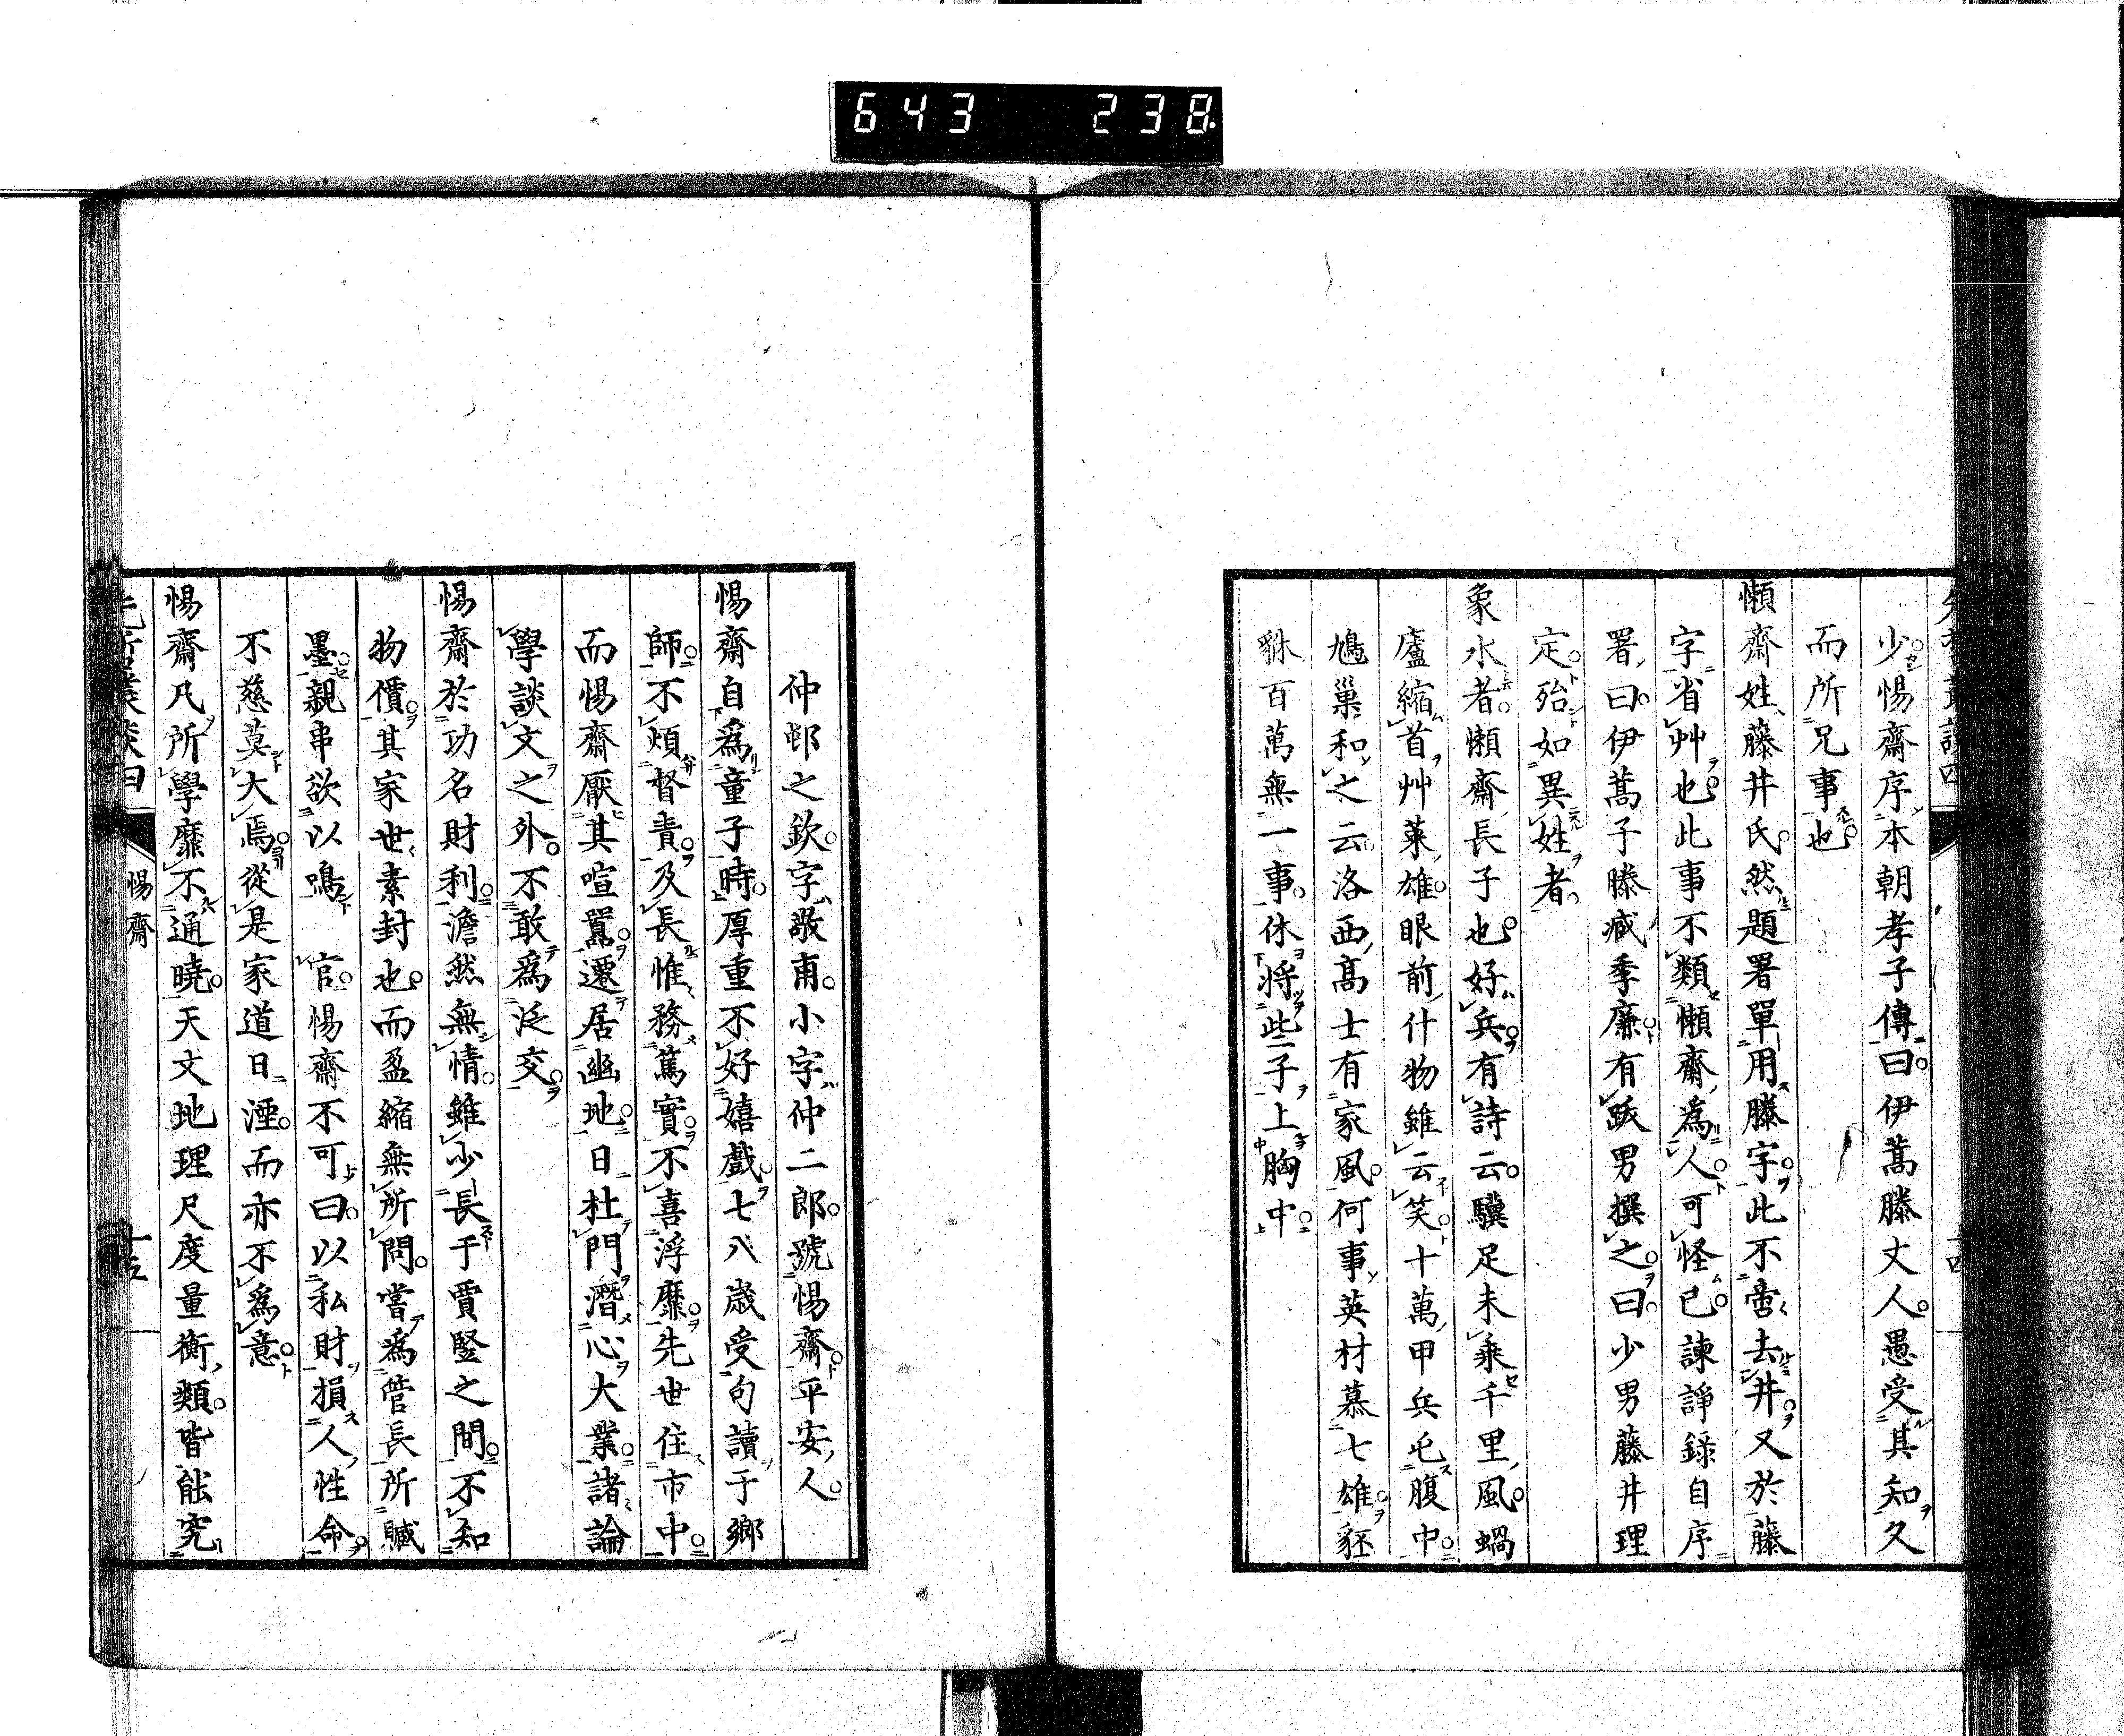 643 238
少惕齋序本朝孝子傳曰伊蒿滕丈人愚受其知久
而所兄事也
懶齋姓藤井氏然題署單用滕字此不啻去井又於藤
字省艸也此事不類懶齋為人可怪已諫諍錄自序
署曰伊蒿子滕臧季廉有跋男撰之曰少男藤井理
定殆如異姓者
象水者懶齋長子也好兵有詩云驥足未乘千里風蝸
廬縮首艸萊雄眼前什物雖云笑十萬甲兵屯腹中
鳩巢和之云洛西高士有家風何事英材慕七雄豼
貅百萬無一事休將些子上胸中
仲邨之欽字敬甫小字仲二郎號惕齋平安人
惕齋自為童子時厚重不好嬉戲七八歲受句讀于鄉
師不煩督責及長惟務篤實不喜浮靡先世住市中
而惕齋厭其喧囂遷居幽地日杜門潛心大業諸論
學談文之外不敢為泛交
惕齋於功名財利澹然無情雖少長于賈豎之間不知
物價其家世素封也而盈縮無所問嘗為管長所贓
墨親串欲以鳴 官惕齋不可曰以私財損人性命
不慈莫大焉從是家道日湮而亦不為意
惕齋凡所學靡不通曉天文地理尺度量衡類皆能究
惕齋